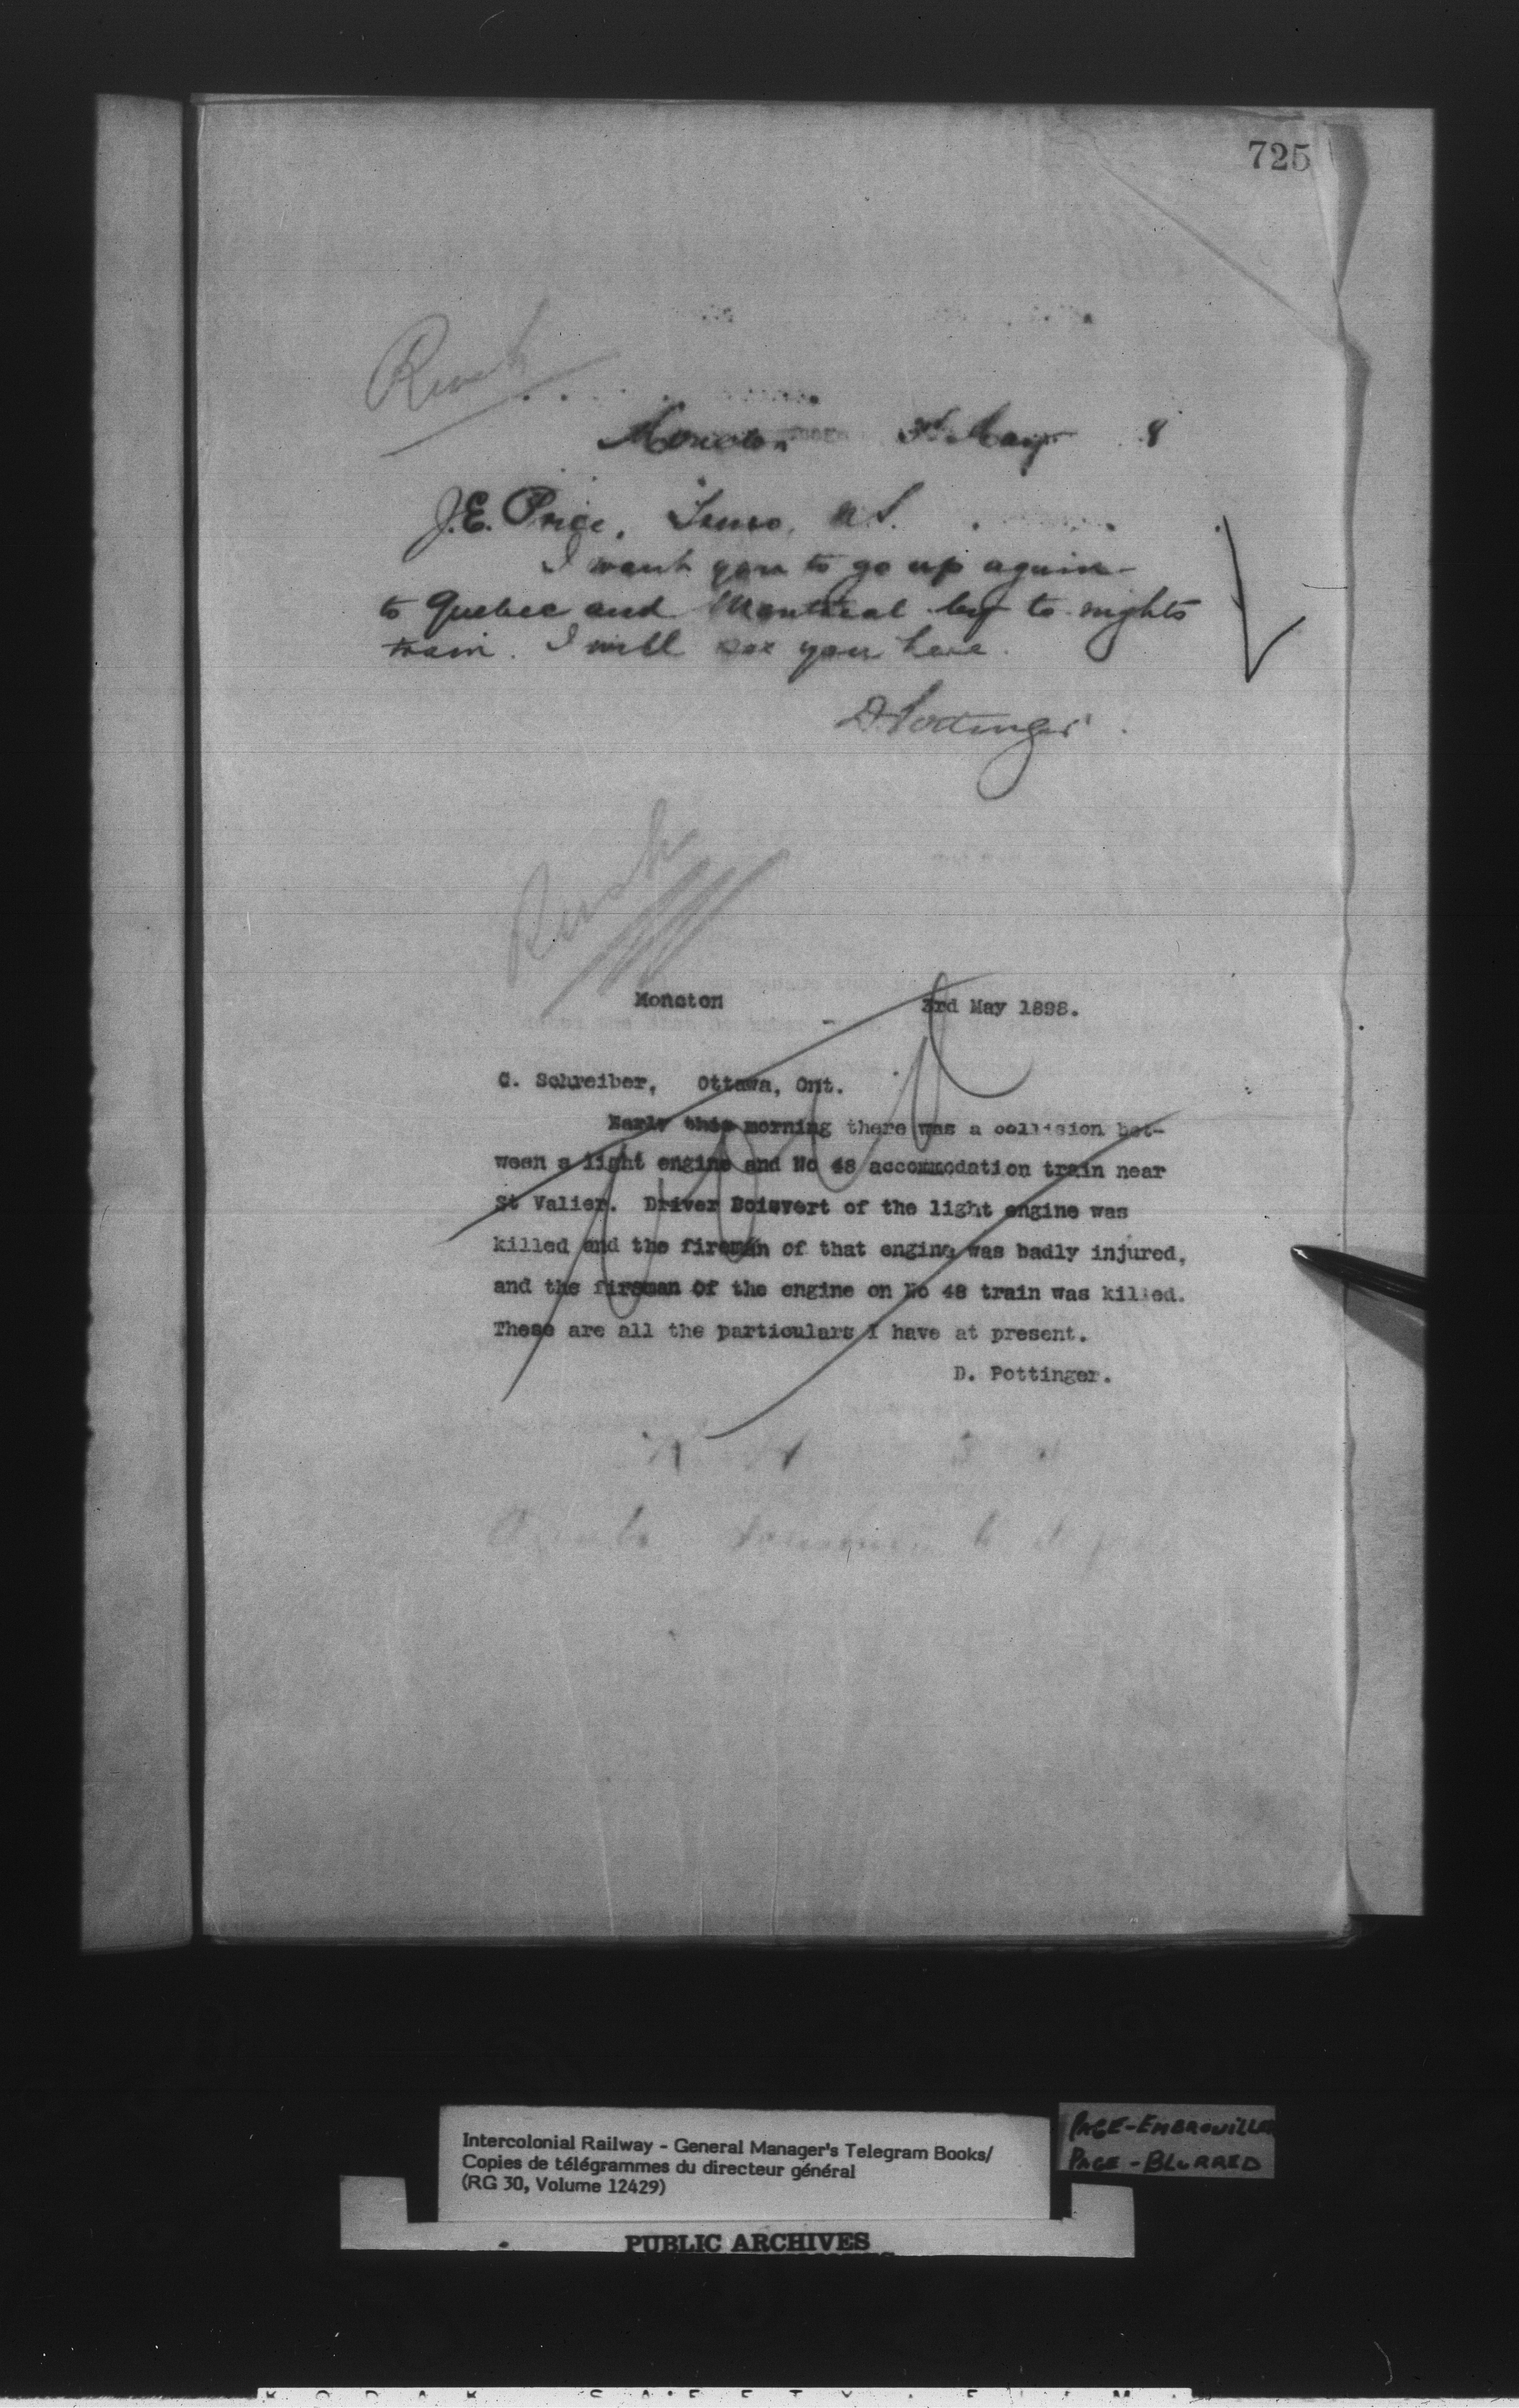 725
Rush
Moncton 3rd May 8
J.E. Price, Truro, N.S.
I want you to go up again
to Quebec and Montreal by to-nights
train. I will see you here.
D Pottinger
Rush
Moncton 3rd May 1898.
C. Schreiber, Ottawa, Ont.
Early this morning there was a collision bet-
ween a light engine and No 48 accommodation train near
St Valier. Driver Boisvert of the light engine was
killed and the fireman of that engine was badly injured,
and the fireman of the engine on No 48 train was killed.
These are all the particulars I have at present.
D. Pottinger.
Intercolonial Railway - General Manager's Telegram Books/
Copies de télégrammes du directeur général
(RG 30, Volume 12429)
PAGE-EMBROUILLEE
PAGE-BLURRED
PUBLIC ARCHIVES
KODAK SAFETY FILM